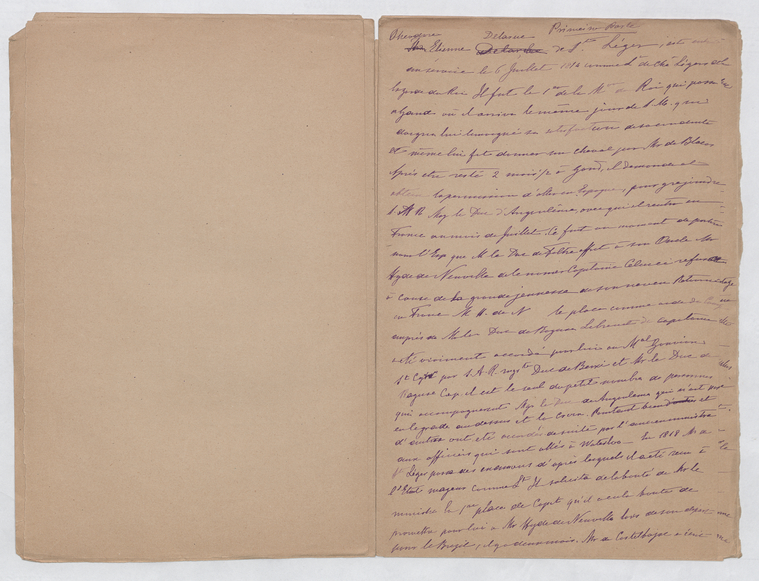 Delarue Première Partie
Etienne de St Léger, est né
en service le 6 Juillet 1814 comme Lt de Chx Légers de
la garde du Roi. Il fut le 1er de la Mon du Roi qui passa
à Gand où il arriva le même jour de S. M. qui
daigna lui témoigner sa satisfaction de sa conduite
et même lui fit donner un cheval par Mr de Blacas
Après être resté 2 mois 1/2 à Gand, il demanda et
obtint la permission d'aller en Espagne, pour y rejoindre
S. A. R. Mgr le Duc d'Angoulême, avec qui il rentra en
France au mois de Juillet. Ce fut au moment de partir
pour l'Esp que M. le Duc de Feltre offrit à son Oncle Mr
Hyde de Neuville de le nommer Capitaine. Celui ci refusa
à cause de la grande jeunesse de son neveu. Retourné
en France M. H. de N. le plaça comme aide de camp
auprès de Mr le Duc de Raguse. Le brevet de capitaine
a été vivement accordé pour lui au Mal
par S. A. R. Mgr le Duc de Berri et Mr le Duc de
Raguse. Cap. il est le seul du petit nombre de personnes
qui accompagnaient Mgr le Duc d'Angoulême qui n'ait pas
eu le grade au dessus et la croix. Pourtant et
d'autres ont été accordés de suite par l'ancien ministre
aux officiers qui sont allés à Waterloo. En 1818 M. de
St Léger passa des examens d'après lesquels il a été reçu à
l'Etat major comme Lt. Il sollicite de la bonté de Mr le
ministre la 1re place de Capit qu'il a eu la bonté de
promettre pour lui à Mr Hyde de Neuville lors de son départ
pour le Brésil, il y a deux mois. Mr de